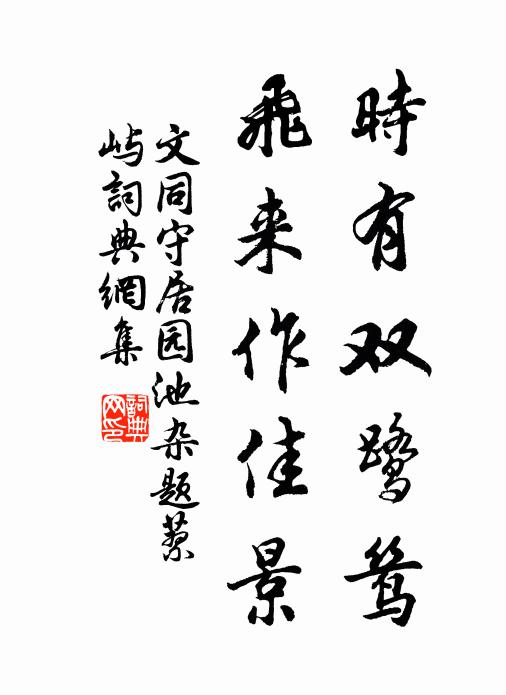 時有双鹭鸶
飛来作佳景
文同守居园池杂题蓼
屿詞典網集
詞典
网印